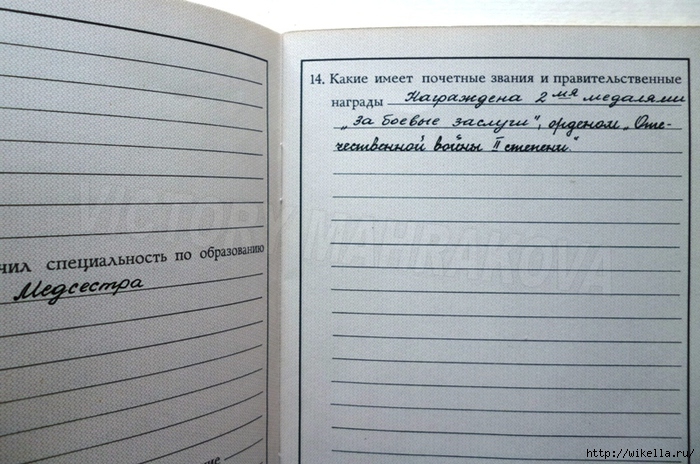 чил специальность по образованию
Медсестра
14. Какие имеет почетные звания и правительственные
награды Награждена 2мя медалями
„За боевые заслуги", орденом „Оте-
чественной войны II степени"
VICTORY MAHRAKOVA
http://wikella.ru/